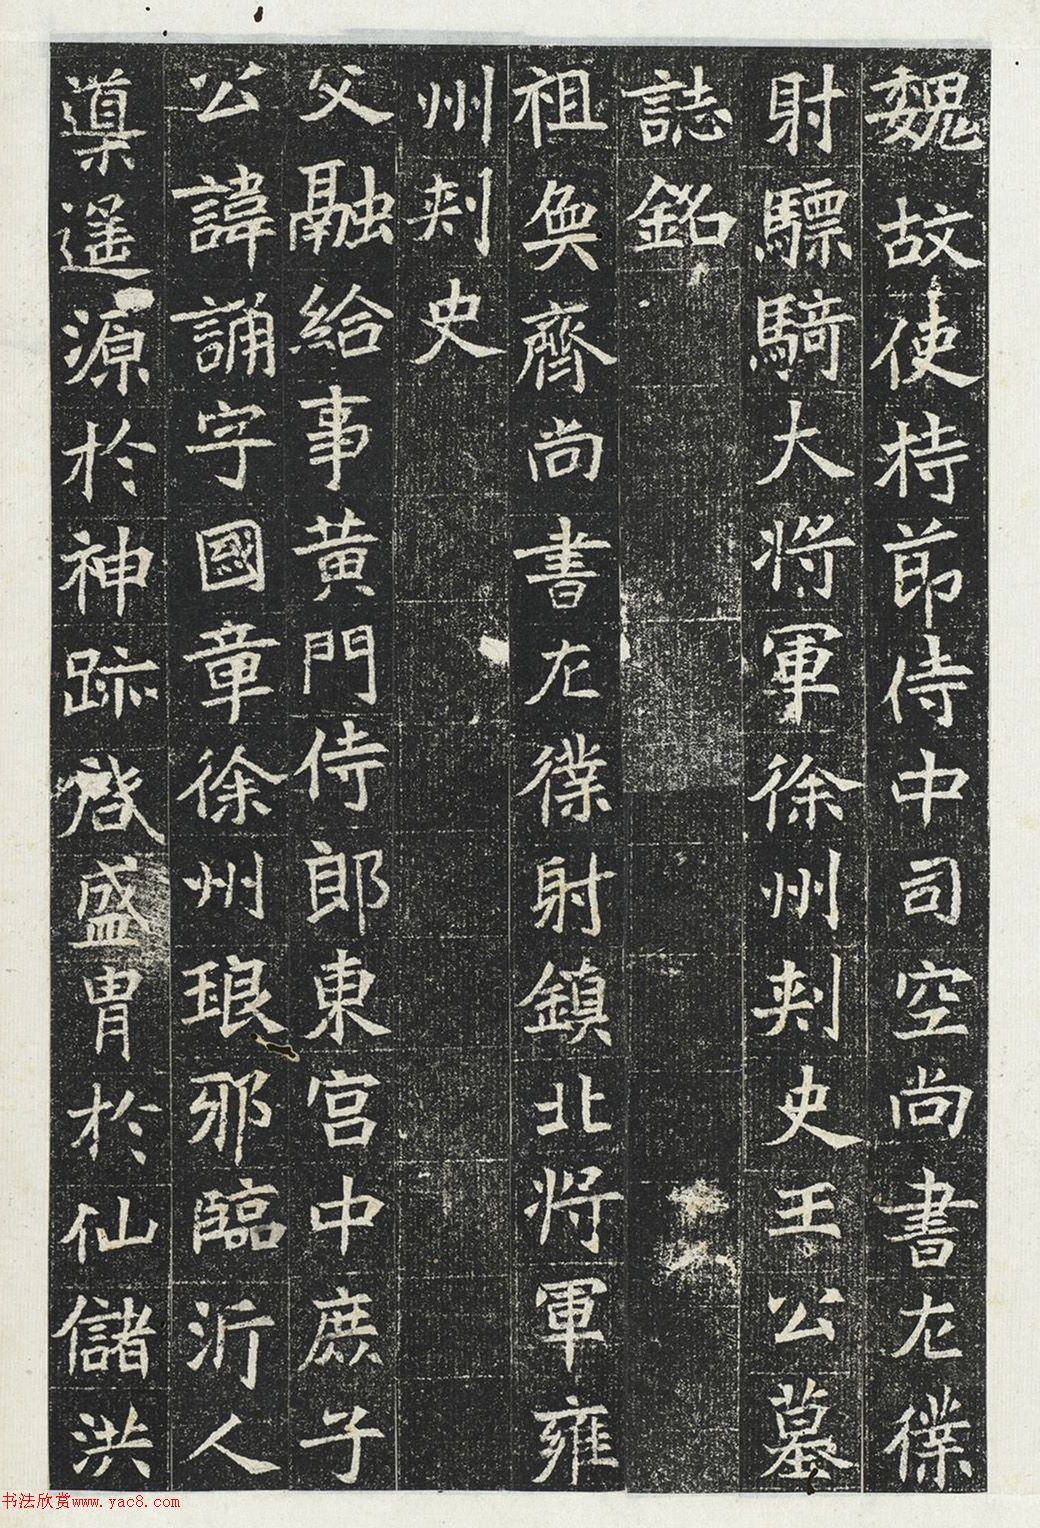 魏故使持節侍中司空尚書左僕
射驃騎大將軍徐州刺史王公墓
誌銘
祖奐齊尚書左僕射鎮北將軍雍
州刺史
父融給事黃門侍郎東宮中庶子
公諱誦字國章徐州琅邪臨沂人
導遥源於神跡啓盛胄於仙儲洪
书法欣赏www.yac8.com